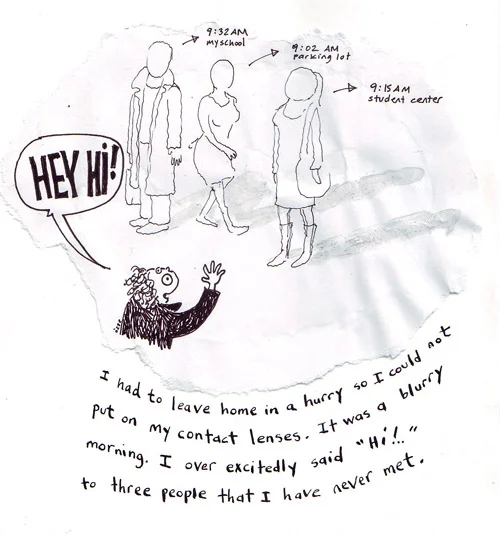 9:32AM
myschool
9:02 AM
parking lot
9:15AM
student center
HEY HI!
I had to leave home in a hurry so I could not
put on my contact lenses. It was a blurry
morning. I over excitedly said "Hi!.."
to three people that I have never met.